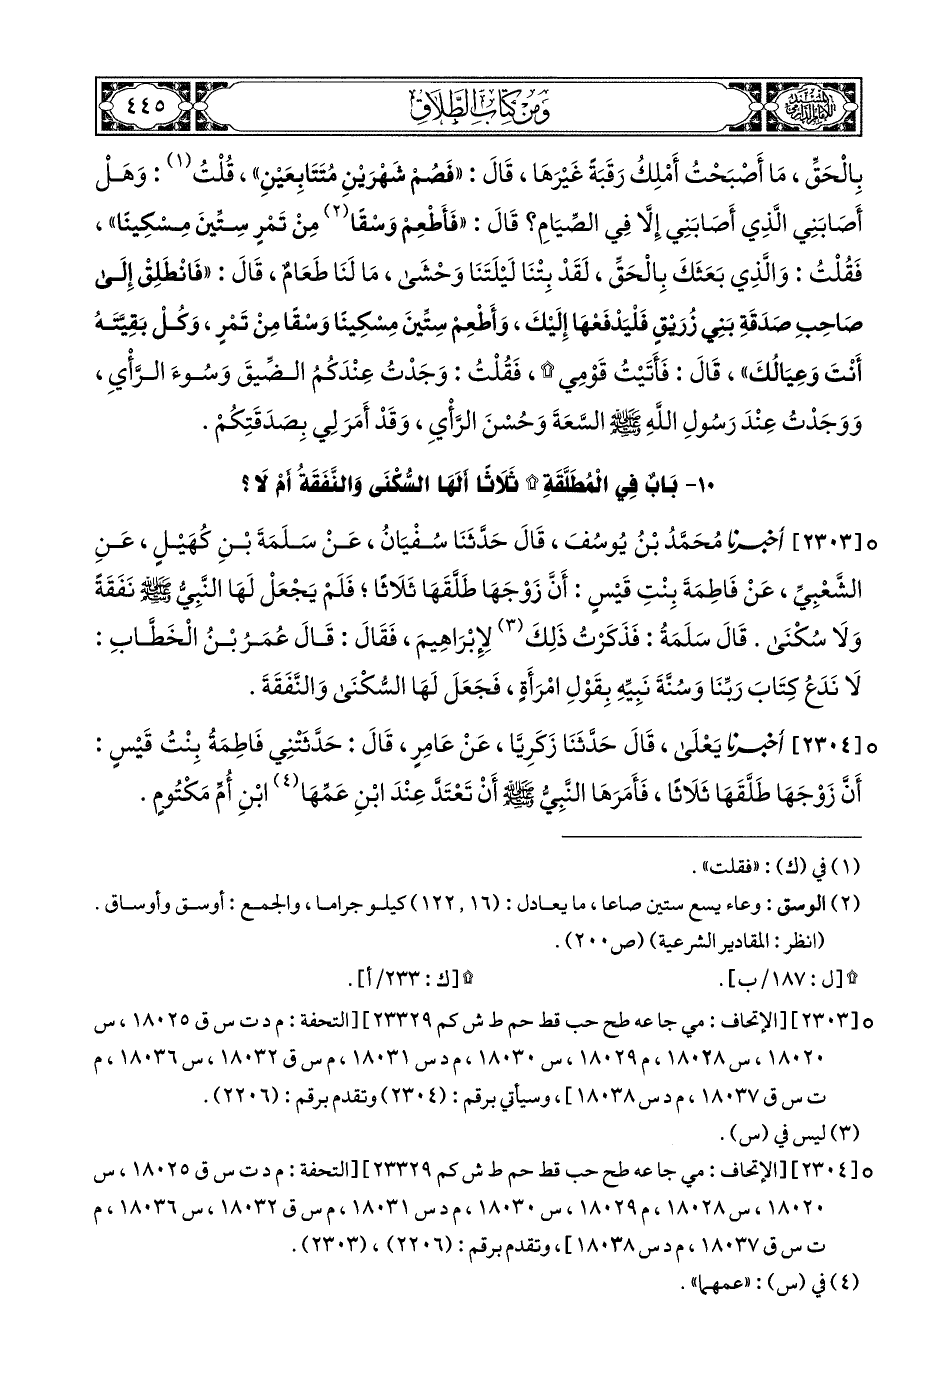 ومن كتاب الطلاق ٤٤٥
بِالْحَقِّ ، مَا أَصْبَحْتُ أَمْلِكُ رَقَبَةً غَيْرَهَا ، قَالَ : «فَصُمْ شَهْرَيْنِ مُتَتَابِعَيْنِ» ، قُلْتُ(١) : وَهَلْ
أَصَابَنِي الَّذِي أَصَابَنِي إِلَّا فِي الصِّيَامِ؟ قَالَ : «فَأَطْعِمْ وَسْقًا(٢) مِنْ تَمْرٍ سِتِّينَ مِسْكِينًا» ،
فَقُلْتُ : وَالَّذِي بَعَثَكَ بِالْحَقِّ ، لَقَدْ بِتْنَا لَيْلَتَنَا وَحْشَىٰ ، مَا لَنَا طَعَامٌ ، قَالَ : «فَانْطَلِقْ إِلَىٰ
صَاحِبِ صَدَقَةِ بَنِي زُرَيْقٍ فَلْيَدْفَعْهَا إِلَيْكَ ، وَأَطْعِمْ سِتِّينَ مِسْكِينًا وَسْقًا مِنْ تَمْرٍ ، وَكُلْ بَقِيَّتَهُ
أَنْتَ وَعِيَالُكَ» ، قَالَ : فَأَتَيْتُ قَوْمِي ۩ ، فَقُلْتُ : وَجَدْتُ عِنْدَكُمُ الضِّيقَ وَسُوءَ الرَّأْيِ ،
وَوَجَدْتُ عِنْدَ رَسُولِ اللَّهِ ﷺ السَّعَةَ وَحُسْنَ الرَّأْيِ ، وَقَدْ أَمَرَ لِي بِصَدَقَتِكُمْ .
١٠- بَابٌ فِي الْمُطَلَّقَةِ ۩ ثَلَاثًا أَلَهَا السُّكْنَى وَالنَّفَقَةُ أَمْ لَا؟
o [٢٣٠٣] أخبرنا مُحَمَّدُ بْنُ يُوسُفَ ، قَالَ حَدَّثَنَا سُفْيَانُ ، عَنْ سَلَمَةَ بْنِ كُهَيْلٍ ، عَنِ
الشَّعْبِيِّ ، عَنْ فَاطِمَةَ بِنْتِ قَيْسٍ : أَنَّ زَوْجَهَا طَلَّقَهَا ثَلَاثًا ؛ فَلَمْ يَجْعَلْ لَهَا النَّبِيُّ ﷺ نَفَقَةً
وَلَا سُكْنَىٰ . قَالَ سَلَمَةُ : فَذَكَرْتُ ذَلِكَ(٣) لِإِبْرَاهِيمَ ، فَقَالَ : قَالَ عُمَرُ بْنُ الْخَطَّابِ :
لَا نَدَعُ كِتَابَ رَبِّنَا وَسُنَّةَ نَبِيِّهِ بِقَوْلِ امْرَأَةٍ ، فَجَعَلَ لَهَا السُّكْنَىٰ وَالنَّفَقَةَ .
o [٢٣٠٤] أخبرنا يَعْلَىٰ ، قَالَ حَدَّثَنَا زَكَرِيَّا ، عَنْ عَامِرٍ ، قَالَ : حَدَّثَتْنِي فَاطِمَةُ بِنْتُ قَيْسٍ :
أَنَّ زَوْجَهَا طَلَّقَهَا ثَلَاثًا ، فَأَمَرَهَا النَّبِيُّ ﷺ أَنْ تَعْتَدَّ عِنْدَ ابْنِ عَمِّهَا(٤) ابْنِ أُمِّ مَكْتُومٍ .
(١) في (ك) : «فقلت» .
(٢) الوسق : وعاء يسع ستين صاعا ، ما يعادل : (١٢٢,١٦) كيلو جراما ، والجمع : أوسق وأوساق .
(انظر : المقادير الشرعية) (ص٢٠٠) .
۩ [ل : ١٨٧/ ب] . ۩ [ك : ٢٣٣/ أ] .
o [٢٣٠٣] [الإتحاف : مي جا عه طح حب قط حم ط ش كم ٢٣٣٢٩] [التحفة : م د ت س ق ١٨٠٢٥ ، س
١٨٠٢٠ ، س ١٨٠٢٨ ، م ١٨٠٢٩ ، س ١٨٠٣٠ ، م د س ١٨٠٣١ ، م س ق ١٨٠٣٢ ، س ١٨٠٣٦ ، م
ت س ق ١٨٠٣٧ ، م د س ١٨٠٣٨] ، وسيأتي برقم : (٢٣٠٤) وتقدم برقم : (٢٢٠٦) .
(٣) ليس في (س) .
o [٢٣٠٤] [الإتحاف : مي جا عه طح حب قط حم ط ش كم ٢٣٣٢٩] [التحفة : م د ت س ق ١٨٠٢٥ ، س
١٨٠٢٠ ، س ١٨٠٢٨ ، م ١٨٠٢٩ ، س ١٨٠٣٠ ، م د س ١٨٠٣١ ، م س ق ١٨٠٣٢ ، س ١٨٠٣٦ ، م
ت س ق ١٨٠٣٧ ، م د س ١٨٠٣٨] ، وتقدم برقم : (٢٢٠٦) ، (٢٣٠٣) .
(٤) في (س) : «عمهما» .